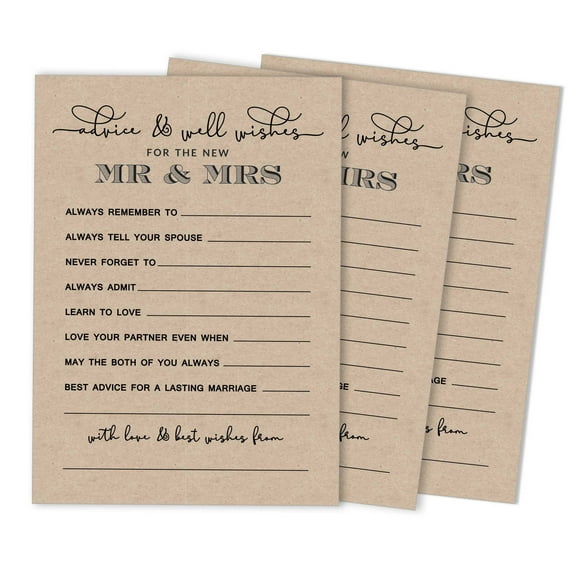 advice & well wishes
FOR THE NEW
MR & MRS
ALWAYS REMEMBER TO
ALWAYS TELL YOUR SPOUSE
NEVER FORGET TO
ALWAYS ADMIT
LEARN TO LOVE
LOVE YOUR PARTNER EVEN WHEN
MAY THE BOTH OF YOU ALWAYS
BEST ADVICE FOR A LASTING MARRIAGE
with love & best wishes from
wishes
W
IRS
GE
from
wishes
RS
AGE
s from